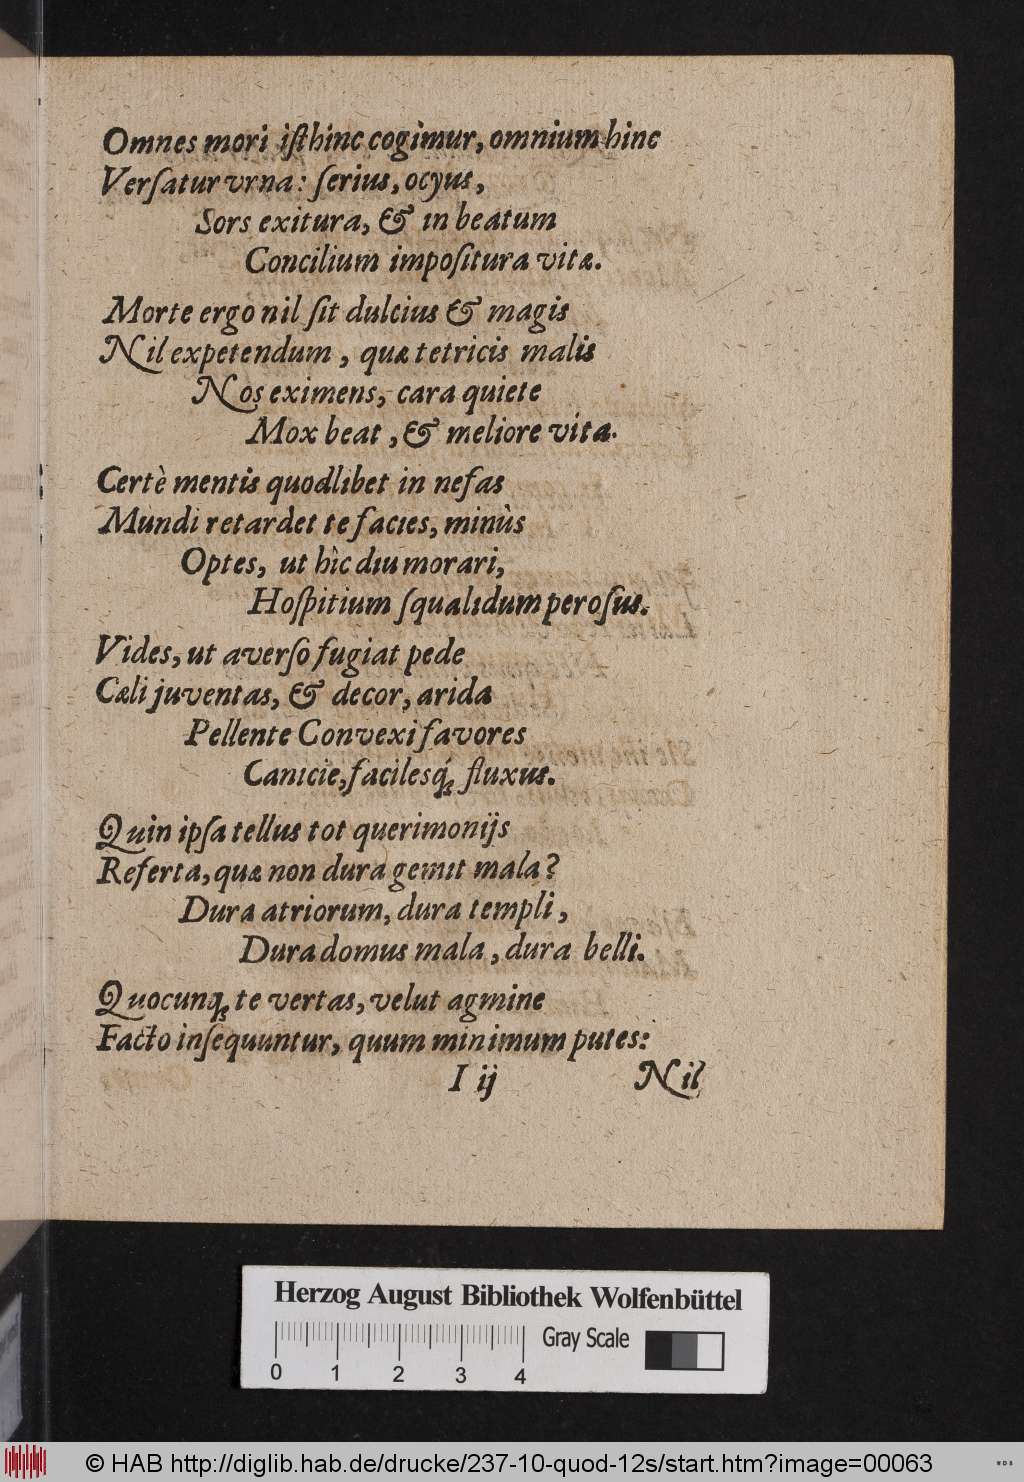 Omnes mori iſthinc cogimur, omnium hinc
Verſatur vrna: ſerius, ocyus,
Sors exitura, & in beatum
Concilium impoſitura vitæ.
Morte ergo nil ſit dulcius & magis
Nil expetendum, quæ tetricis malis
Nos eximens, cara quiete
Mox beat, & meliore vita.
Certè mentis quodlibet in nefas
Mundi retardet te facies, minùs
Optes, ut hìc diu morari,
Hoſpitium ſqualidum peroſus.
Vides, ut averſo fugiat pede
Cæli juventas, & decor, arida
Pellente Convexi favores
Canicie, facilesq́ꝫ fluxus.
Quin ipſa tellus tot querimonijs
Referta, quæ non dura gemit mala?
Dura atriorum, dura templi,
Dura domus mala, dura belli.
Quocunqꝫ te vertas, velut agmine
Facto inſequuntur, quum minimum putes:
I ij Nil
Herzog August Bibliothek Wolfenbüttel
Gray Scale
0 1 2 3 4
© HAB http://diglib.hab.de/drucke/237-10-quod-12s/start.htm?image=00063